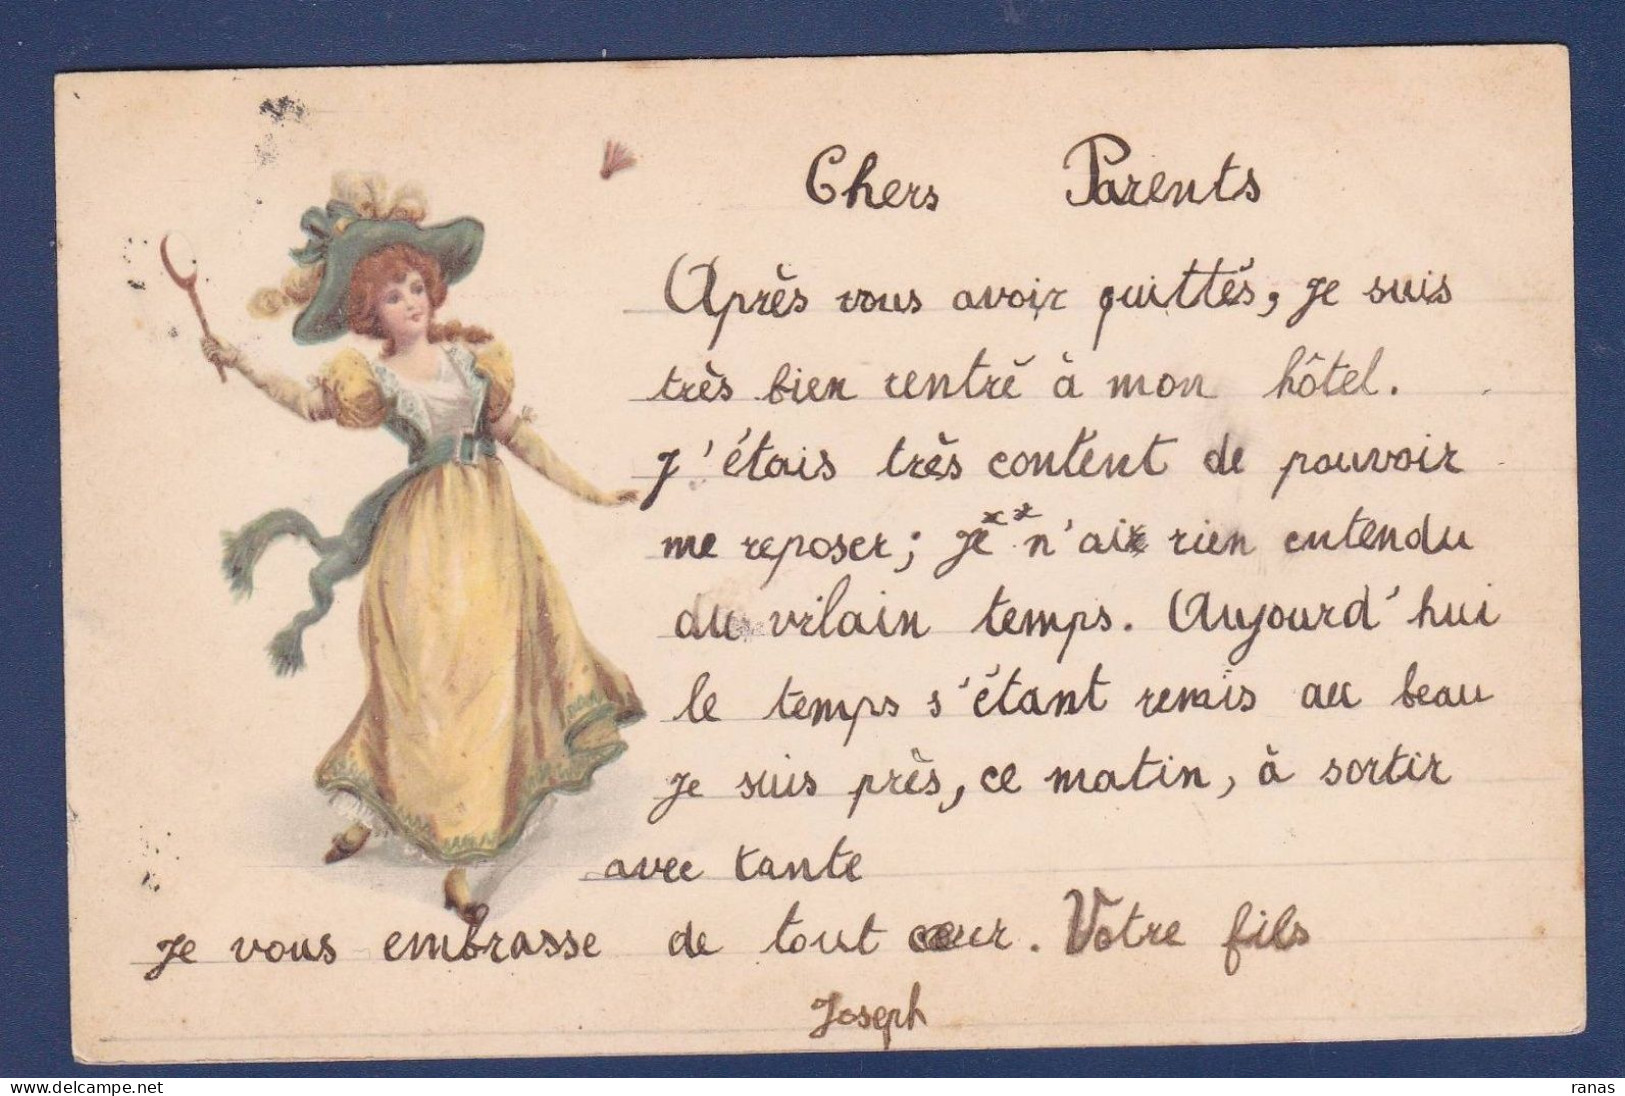 Chers Parents
Après vous avoir quittés, je suis
très bien rentré à mon hôtel.
J'étais très content de pouvoir
me reposer; je n'ai rien entendu
du vilain temps. Aujourd'hui
le temps s'étant remis au beau
je suis près, ce matin, à sortir
avec tante
je vous embrasse de tout cœur. Votre fils
Joseph
www.delcampe.net
ranas